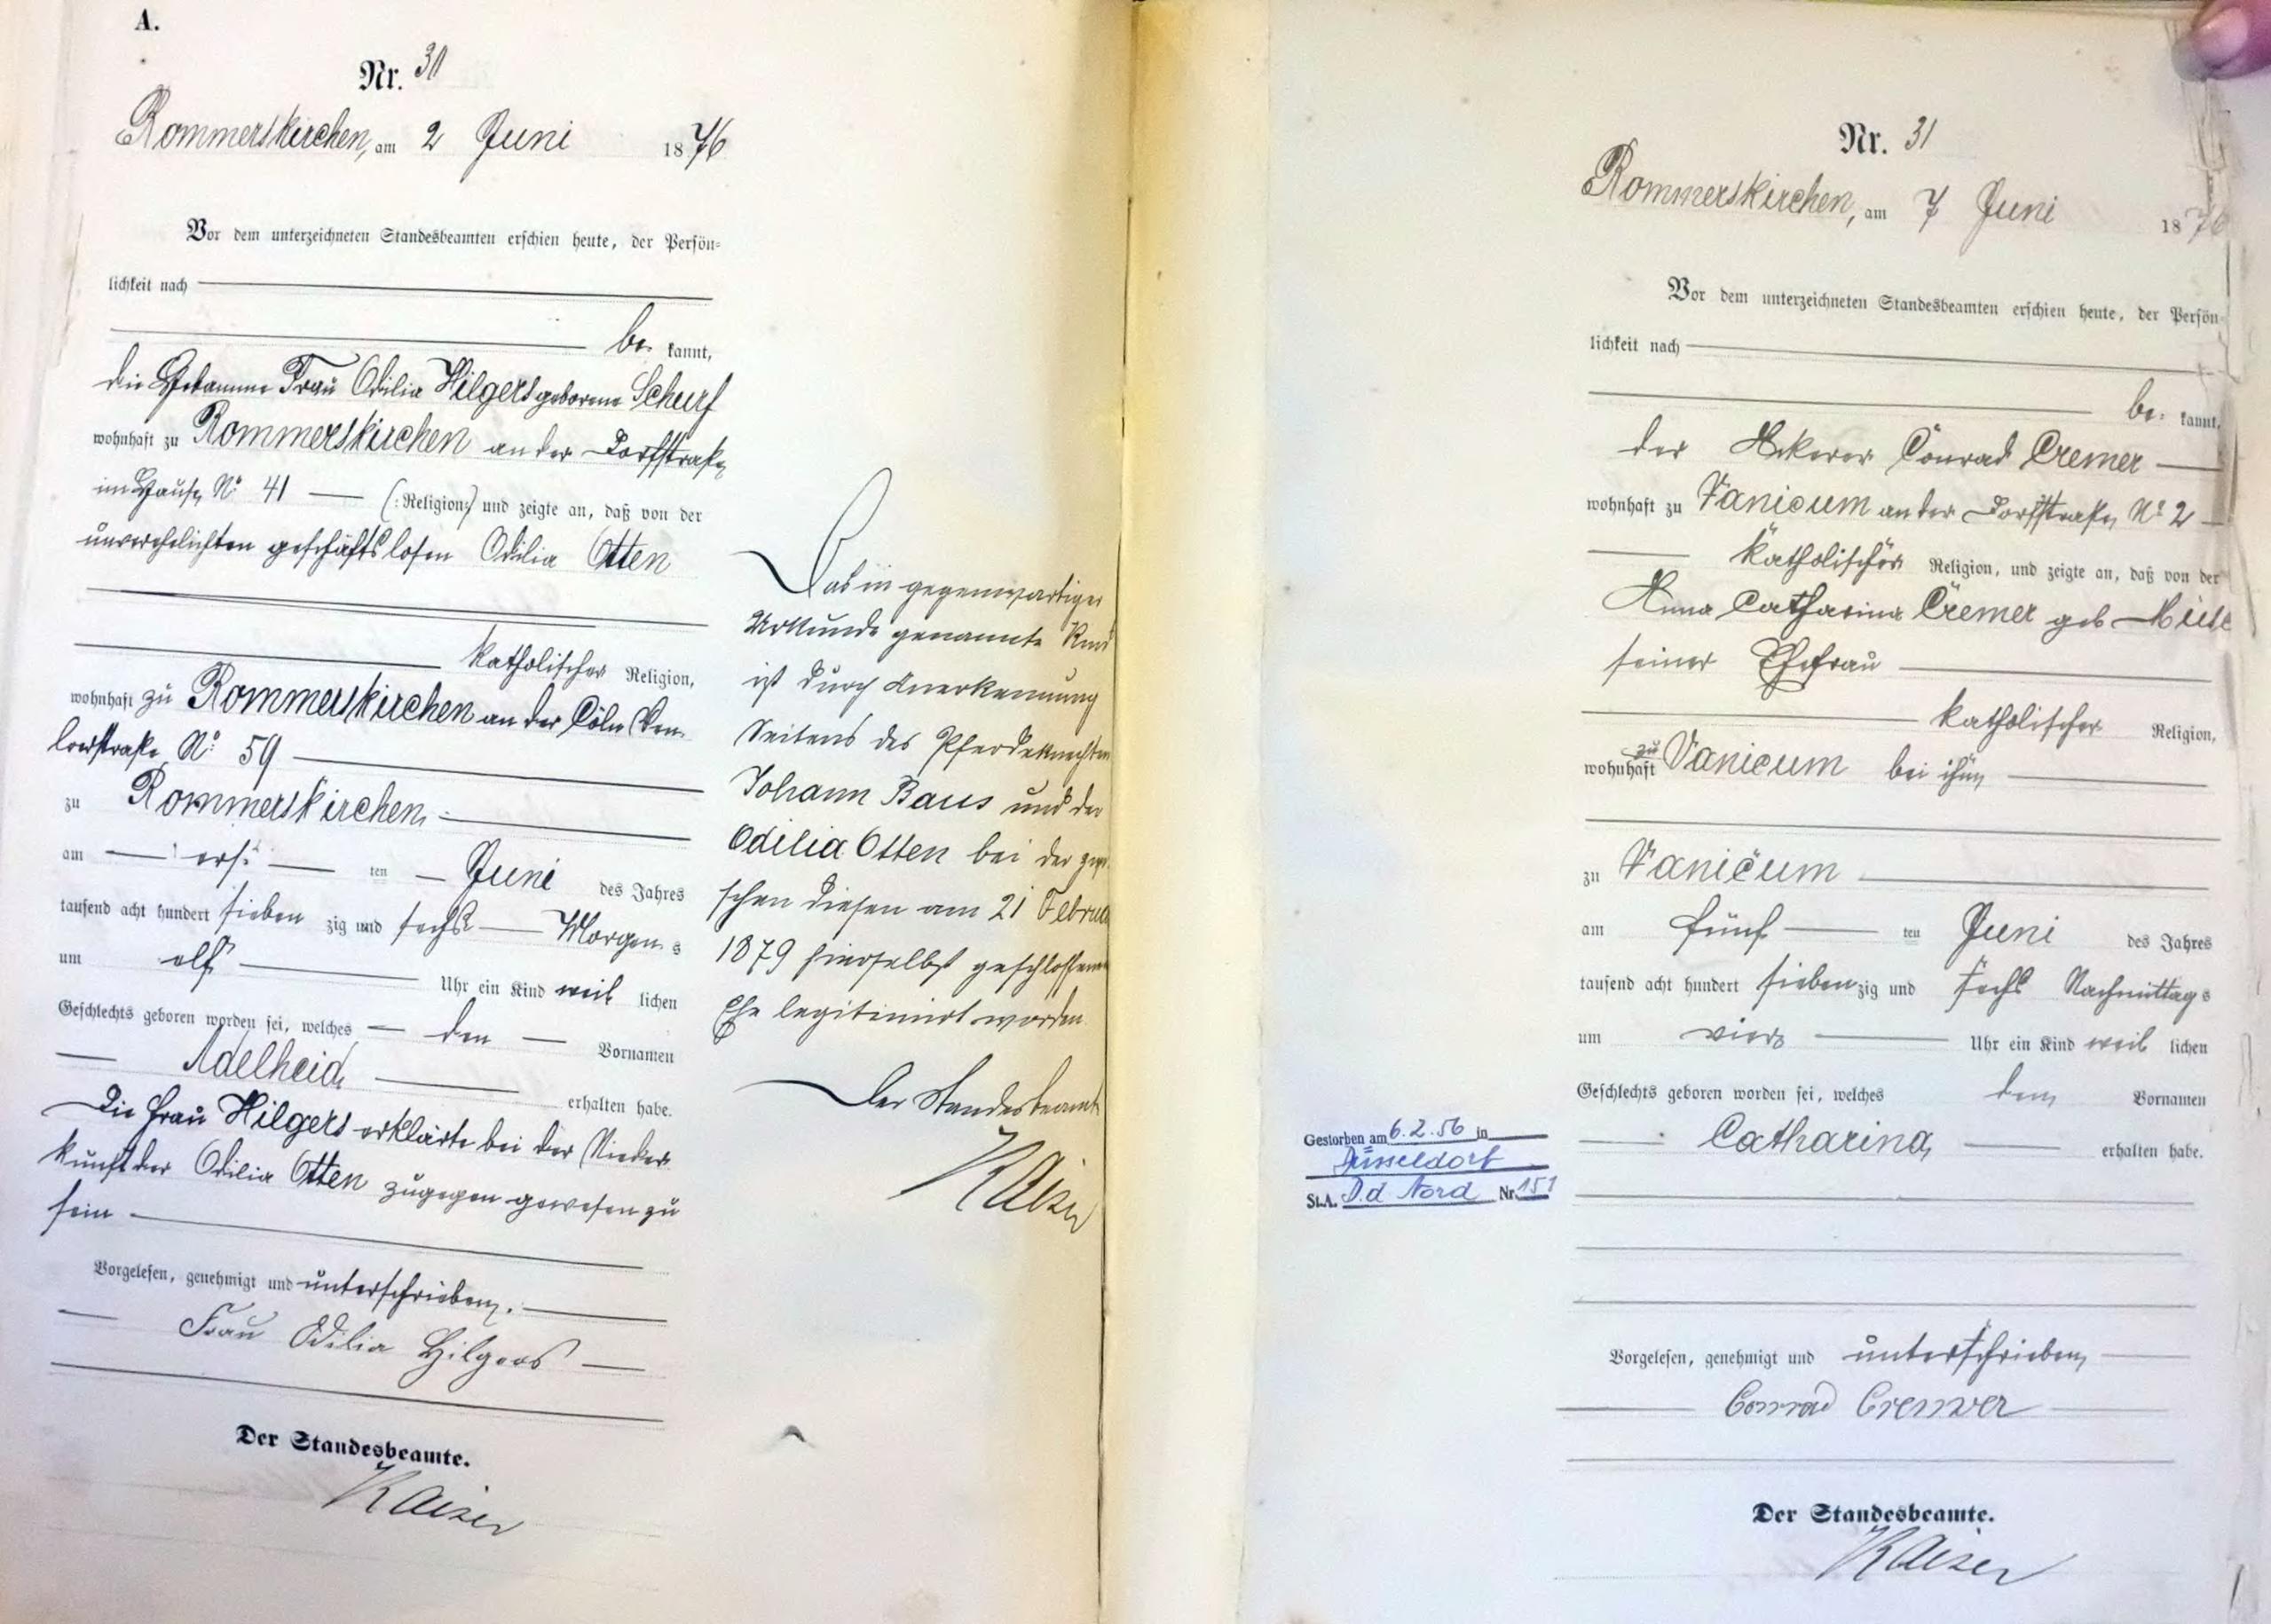 A.
Nr. 30
Rommerskirchen, am 2 Juni 1876
Vor dem unterzeichneten Standesbeamten erschien heute, der Persön-
lichkeit nach
be kannt,
die Hebamme Frau Odilia Hilgers geborene Schurf
wohnhaft zu Rommerskirchen an der Dorfstraße
im Hause No 41 (: Religion:) und zeigte an, daß von der
unverehelichten geschäftslosen Odilia Otten
katholischer Religion,
wohnhaft zu Rommerskirchen an der Cöln Ven-
loerstraße No 59
zu Rommerskirchen
am ersten Juni des Jahres
tausend acht hundert sieben zig und sechs Morgens
um elf Uhr ein Kind weib lichen
Geschlechts geboren worden sei, welches den Vornamen
Adelheid
erhalten habe.
Die Frau Hilgers erklärte bei der Nieder-
kunft der Odilia Otten zugegen gewesen zu
sein
Vorgelesen, genehmigt und unterschrieben.
Frau Odilia Hilgers
Der Standesbeamte.
Kaiser
Das in gegenwärtiger
Urkunde genannte Kind
ist durch Anerkennung
Seitens des Pferdeknechten
Johann Baus und der
Odilia Otten bei der zwi-
schen diesen am 21 Februar
1879 hierselbst geschlossenen
Ehe legitimirt worden
Der Standesbeamte
Kaiser
Nr. 31
Rommerskirchen, am 7 Juni 1876
Vor dem unterzeichneten Standesbeamten erschien heute, der Persön-
lichkeit nach
be kannt,
der Ackerer Conrad Cremer
wohnhaft zu Vanicum an der Dorfstraße No 2
katholischer Religion, und zeigte an, daß von der
Anna Catharina Cremer geb
seiner Ehefrau
katholischer Religion,
wohnhaft zu Vanicum bei ihm
zu Vanicum
am fünf ten Juni des Jahres
tausend acht hundert sieben zig und sechs Nachmittags
um vier Uhr ein Kind weib lichen
Geschlechts geboren worden sei, welches den Vornamen
Catharina erhalten habe.
Gestorben am 6.2.56 in
Düsseldorf
St.A. D.d Nord Nr. 151
Vorgelesen, genehmigt und unterschrieben
Conrad Cremer
Der Standesbeamte.
Kaiser